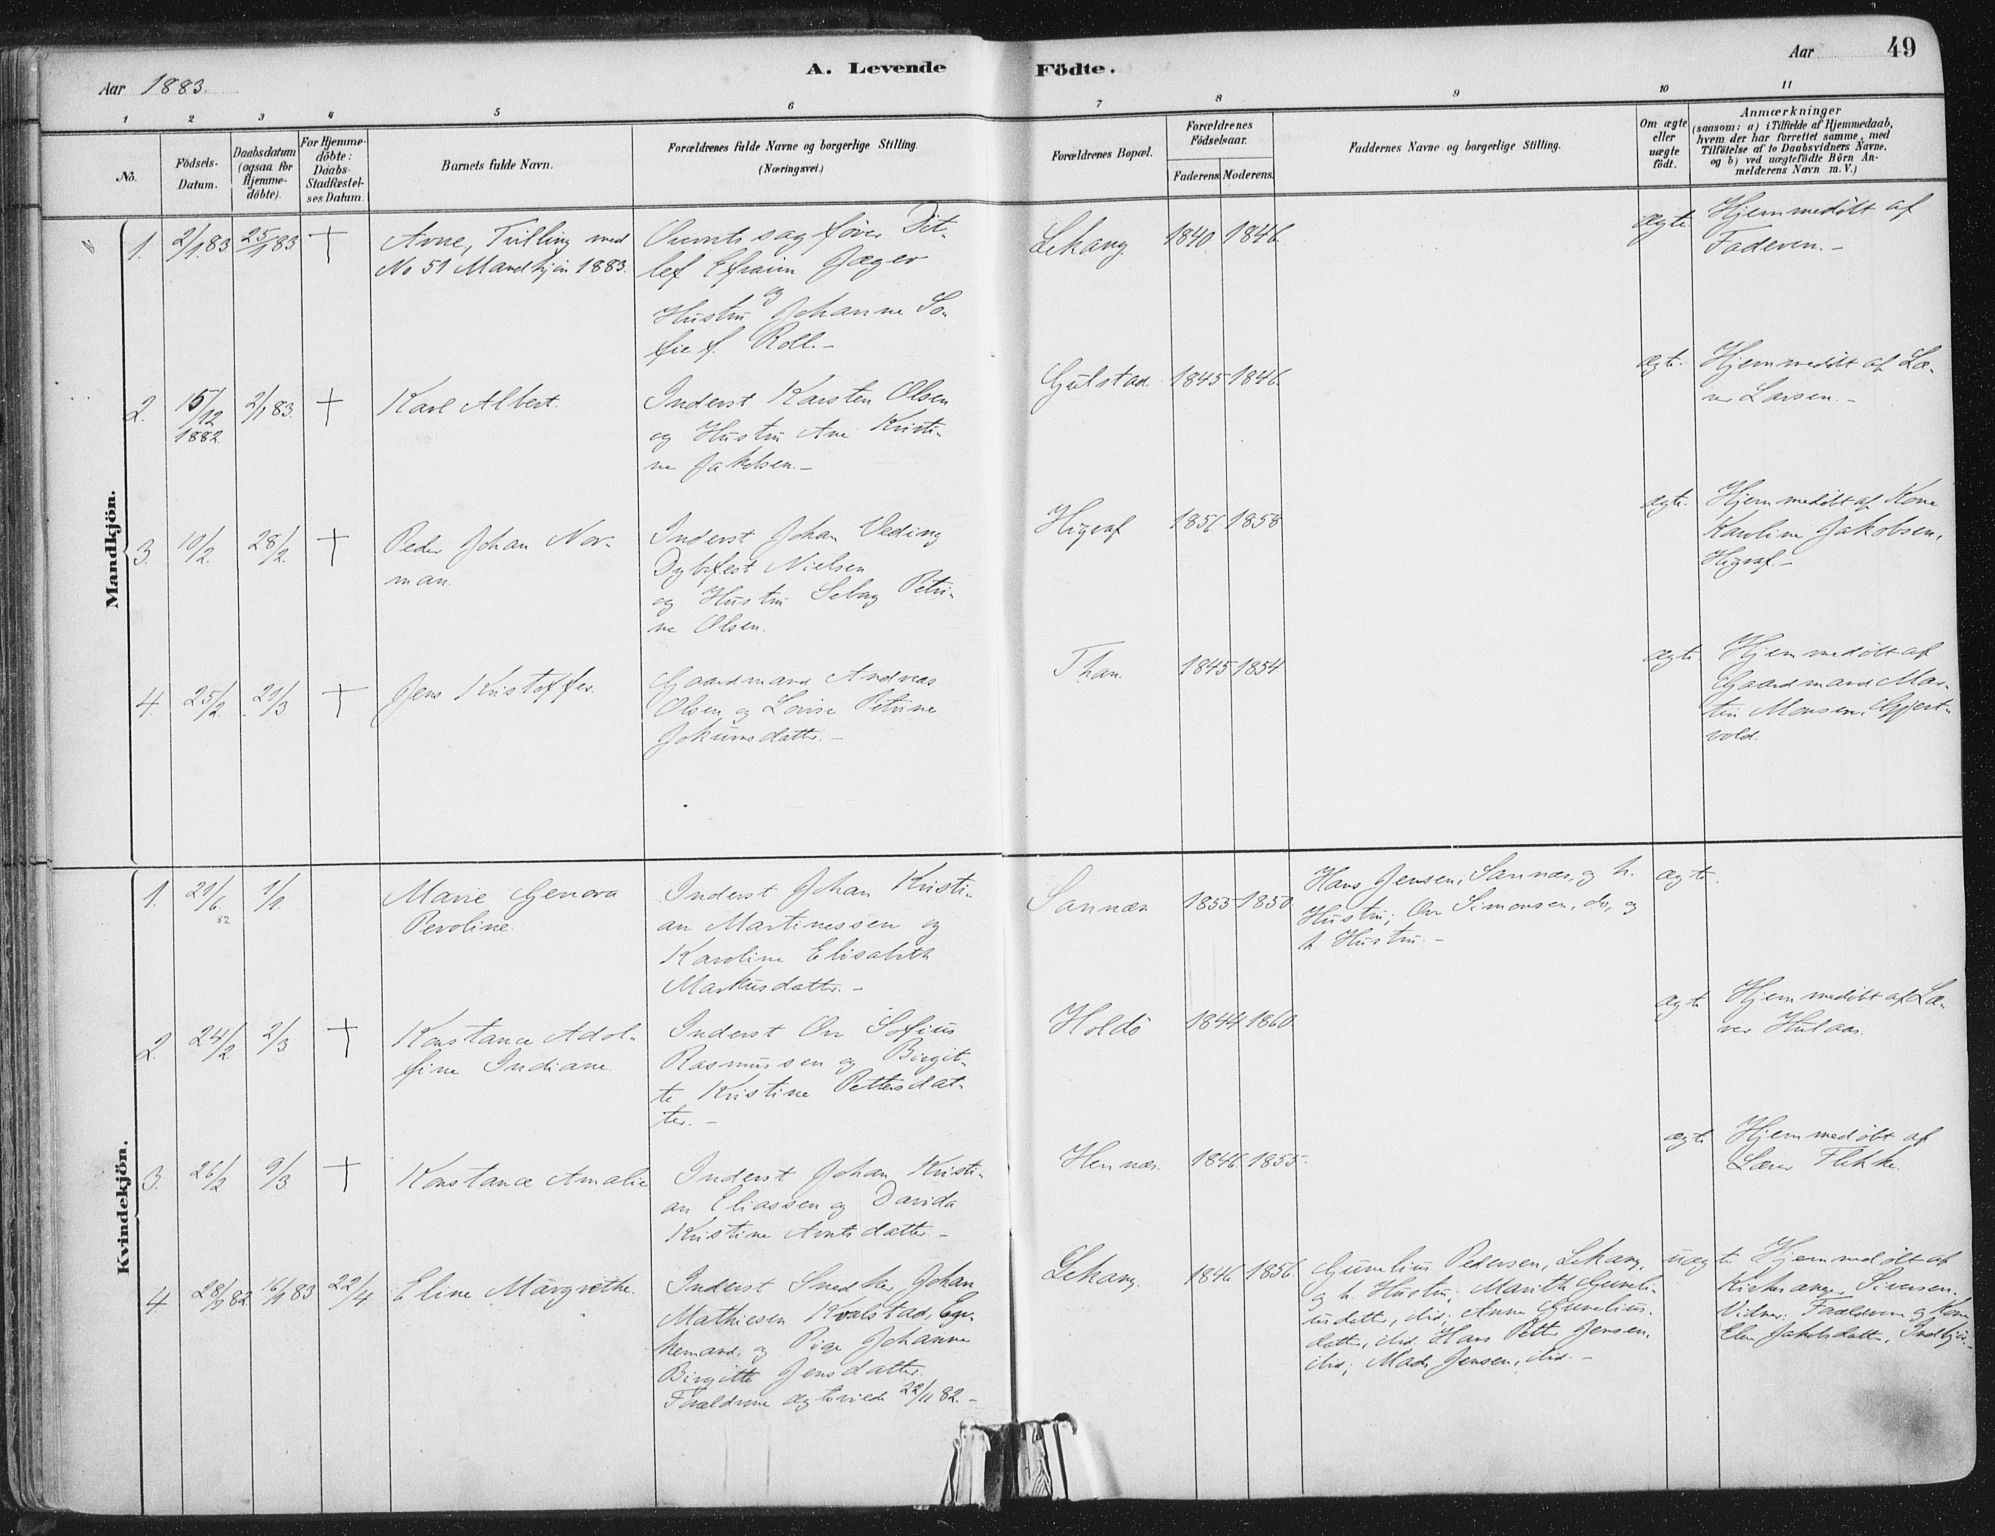 Aar 1883.
A. Levende
Födte.
Aar
49
1
2
3
4
5
6
7
8
9
10
11
No.
Födsels-
Datum.
Daabsdatum
(ogsaa for
Hjemme-
döbte).
For Hjemme-
döbte:
Daabs-
Stadfæstel-
ses Datum.
Barnets fulde Navn.
Forældrenes fulde Navne og borgerlige Stilling.
(Næringsvei.)
Forældrenes Bopæl.
Forældrenes
Födselsaar.
Faderens.
Moderens.
Faddernes Navne og borgerlige Stilling.
Om ægte
eller
uægte
födt.
Anmærkninger
(saasom: a) i Tilfælde af Hjemmedaab,
hvem der har forrettet samme, med
Tilföielse af to Daabsvidners Navne,
og b) ved uægtefödte Börn An-
melderens Navn m. V.)
Mandkjön.
1. 2/1 83. 25/1 83 †
Arne, Tvilling med
No 51 Mandkjön 1883.
Overretssagfører Dit-
lef Efraim Jæger
og
Hustru Johanne So-
fie f. Roll.-
Lekang.
1840. 1846.
ægte.
Hjemmedøbt af
Faderen.-
2. 15/12 1882. 2/1 83. †
Karl Albert.
Inderst Karsten Olsen
og Hustru Ane Kristi-
ne Jakobsen.-
Gulstad.
1845 1846.
ægte.
Hjemmedøbt af Læ-
rer Larsen.-
3. 10/2. 28/2. †
Peder Johan Nor-
man.
Inderst Johan Reding
Dybfest Nielsen
og Hustru Selma Petri-
ne Olsen.
Higraf
1856 1858
ægte.
Hjemmedøbt af Kone
Karoline Jakobsen,
Higraf.-
4. 25/2. 21/3. †
Jens Kristoffer.
Gaardmand Andreas
Olsen og Lovise Petrine
Jokumsdatter.-
Than.
1845 1854
ægte
Hjemmedøbt af
Gaardmand Mar-
tin Monsen,
vold.
Kvindekjön.
1. 21/6 82 1/1
Marie Genora
Peroline.
Inderst Johan Kristi-
an Martinessen og
Karoline Elisabeth
Markusdatter.-
Sannæs
1853 1850.
Hans Jensen, Sannæs, og h.
Hustru; Ole Simonsen, do, og
h. Hustru.-
ægte.
2. 24/2 2/3 †
Konstance Adol-
fine Indiane.
Inderst Ole Sofius
Rasmussen og Birgit-
te Kristine Pettersdat-
ter.-
Holdö
1844. 1860.
ægte
Hjemmedøbt af Læ-
rer Hulaas.
3. 26/2 9/3 †
Konstance Amalie
Inderst Johan Kristi-
an Eliassen og Davida
Kristine Arntsdatter.-
Hennæs.
1846. 1855.
ægte
Hjemmedøbt af
Lærer Flekke.
4 28/9 82. 16/1 83 22/4
Eline Margrethe.
Inderst Snedker Johan
Mathiesen Kvalstad, En-
kemand, og Pige Johanne
Birgitte Jensdatter.
Forældrene ægteviede 22/11 82.-
Lekang.
1846. 1856.
Gunelius Pedersen, Lekang,
og h. Hustru; Marith Guneli-
usdatter, ibid; Anne Gunelius-
datter, ibid. Hans Petter Jensen,
ibid; Mads Jensen, ibid.-
uægte
Hjemmedøbt af
Kirkesanger Sivertsen.
Vidner: Faderen og Kone
Elen Jakobsdatter,